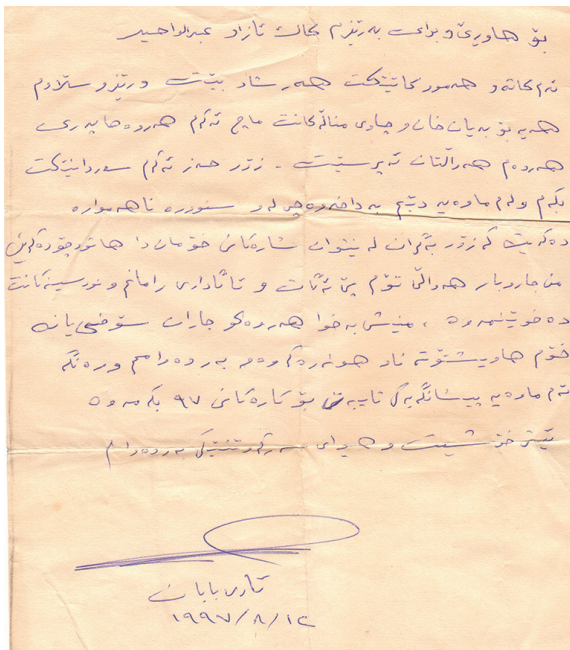 بۆ هاوڕێ و برای بەڕێزم کاک ئازاد عبدالواحید
ئەم کاتە و هەموو کاتێکت هەر شاد بێت و ڕێز و سڵاوم
هەیە بۆ بەیان خان و چاوی مناڵەکانت ماچ ئەکەم هەروەها پەری
هەردەم هەواڵتان ئەپرسێت. زۆر حەز ئەکەم سەردانێکت
بکەم ولەم ماوەیە دێم بەداخەوە چی لەو سنوورە ناهەموارە
دەکرێت کە زۆر بەگران لە نێوان شارەکانی خۆمان دا هاتوچۆ دەکەین
من جاروبار هەواڵی تۆم پێ ئەگات و ئاگاداری ڕامانم و نورسینەکانت
دەخوێنمەوە ، منیش بەخوا هەروەکو جاران
خۆم هاویشتۆتە ناو هونەرەکەوە و بەردەوامم و ڕەنگە
ئەم ماوەیە پیشانگەیەکی تایبەتی بۆ کارەکانی ٩٧ بکەمەوە
ئیتر خۆشیت و هیوای سەرکەوتنێکی بەردەوام
ئاری بابان
١٩٩٧/٨/١٢